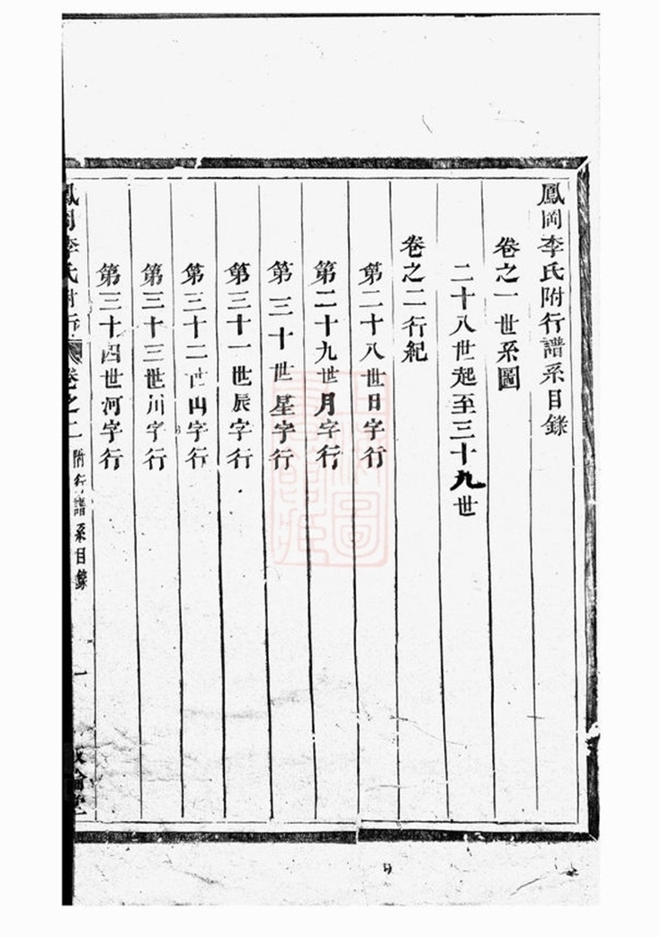 鳳岡李氏附行譜系目錄
卷之一世系圖
二十八世起至三十九世
卷之二行紀
第二十八世日字行
第二十九世月字行
第三十世星字行
第三十一世辰字行
第三十二世山字行
第三十三世川字行
第三十四世河字行
鳳岡李氏附行
卷之二
附行譜系目錄
一